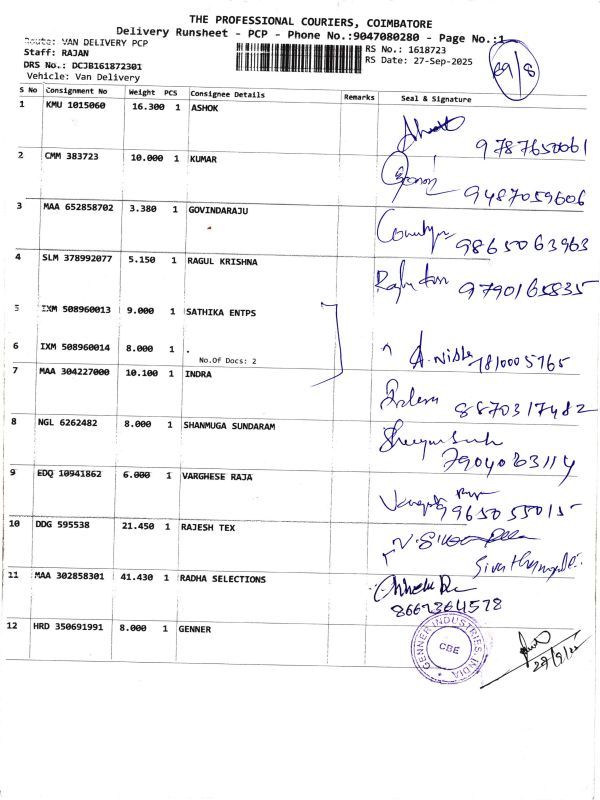 THE PROFESSIONAL COURIERS, COIMBATORE
Delivery Runsheet - PCP - Phone No.:9047080280 - Page No.:1
Route: VAN DELIVERY PCP
RS No.: 1618723
Staff: RAJAN
RS Date: 27-Sep-2025
DRS No.: DCJB161872301
Vehicle: Van Delivery
S No Consignment No Weight PCS Consignee Details Remarks Seal & Signature
1 KMU 1015060 16.300 1 ASHOK
9787650061
2 CMM 383723 10.000 1 KUMAR
9487059606
3 MAA 652858702 3.380 1 GOVINDARAJU
9865063963
4 SLM 378992077 5.150 1 RAGUL KRISHNA
9790165835
5 IXM 508960013 9.000 1 SATHIKA ENTPS
6 IXM 508960014 8.000 1 .
No.Of Docs: 2
7810005765
7 MAA 304227000 10.100 1 INDRA
8870317482
8 NGL 6262482 8.000 1 SHANMUGA SUNDARAM
7904063114
9 EDQ 10941862 6.000 1 VARGHESE RAJA
9965055015
10 DDG 595538 21.450 1 RAJESH TEX
11 MAA 302858301 41.430 1 RADHA SELECTIONS
8667364578
12 HRD 350691991 8.000 1 GENNER
GENNER INDUSTRIES INDIA
CBE